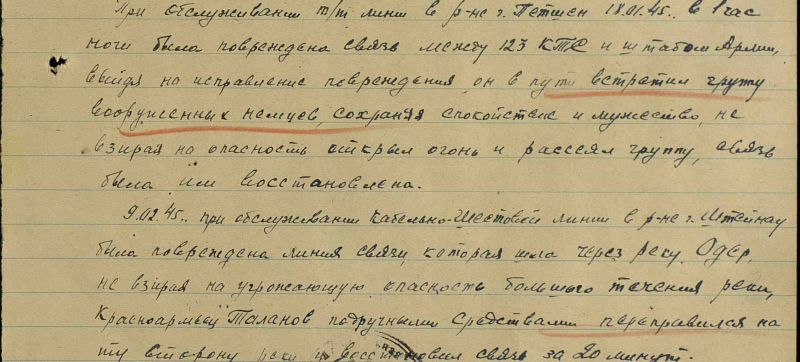 При обслуживании т/т линии в р-не г. Петшен 18.01.45.. в 1 час
ночи была повреждена связь между 123 КТС и штабом Армии,
выйдя на исправление повреждения он в пути встретил группу
вооруженных немцев, сохраняя спокойствие и мужество, не
взирая на опасность открыл огонь и рассеял группу, связь
была им восстановлена.
9.02.45.. при обслуживании кабельно-шестовой линии в р-не г. Штейнау
была повреждена линия связи, которая шла через реку Одер,
не взирая на угрожающую опасность большого течения реки,
Красноармеец Таланов подручными средствами переправился на
ту сторону реки и восстановил связь за 20 минут.